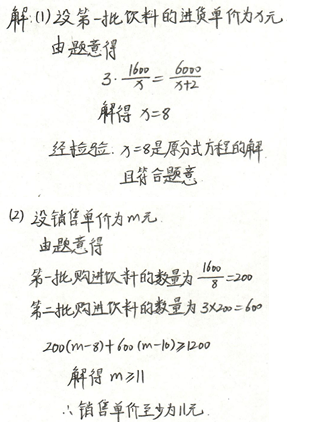 解:(1)设第一批饮料的进货单价为x元
由题意得
3·1600/x=6000/x+2
解得 x=8
经检验.x=8是原分式方程的解
且符合题意
(2) 设销售单价为m元.
由题意得
第一批购进饮料的数量为1600/8=200
第二批购进饮料的数量为3×200=600
200(m-8)+600(m-10)≥1200
解得 m≥11
∴销售单价至少为11元.